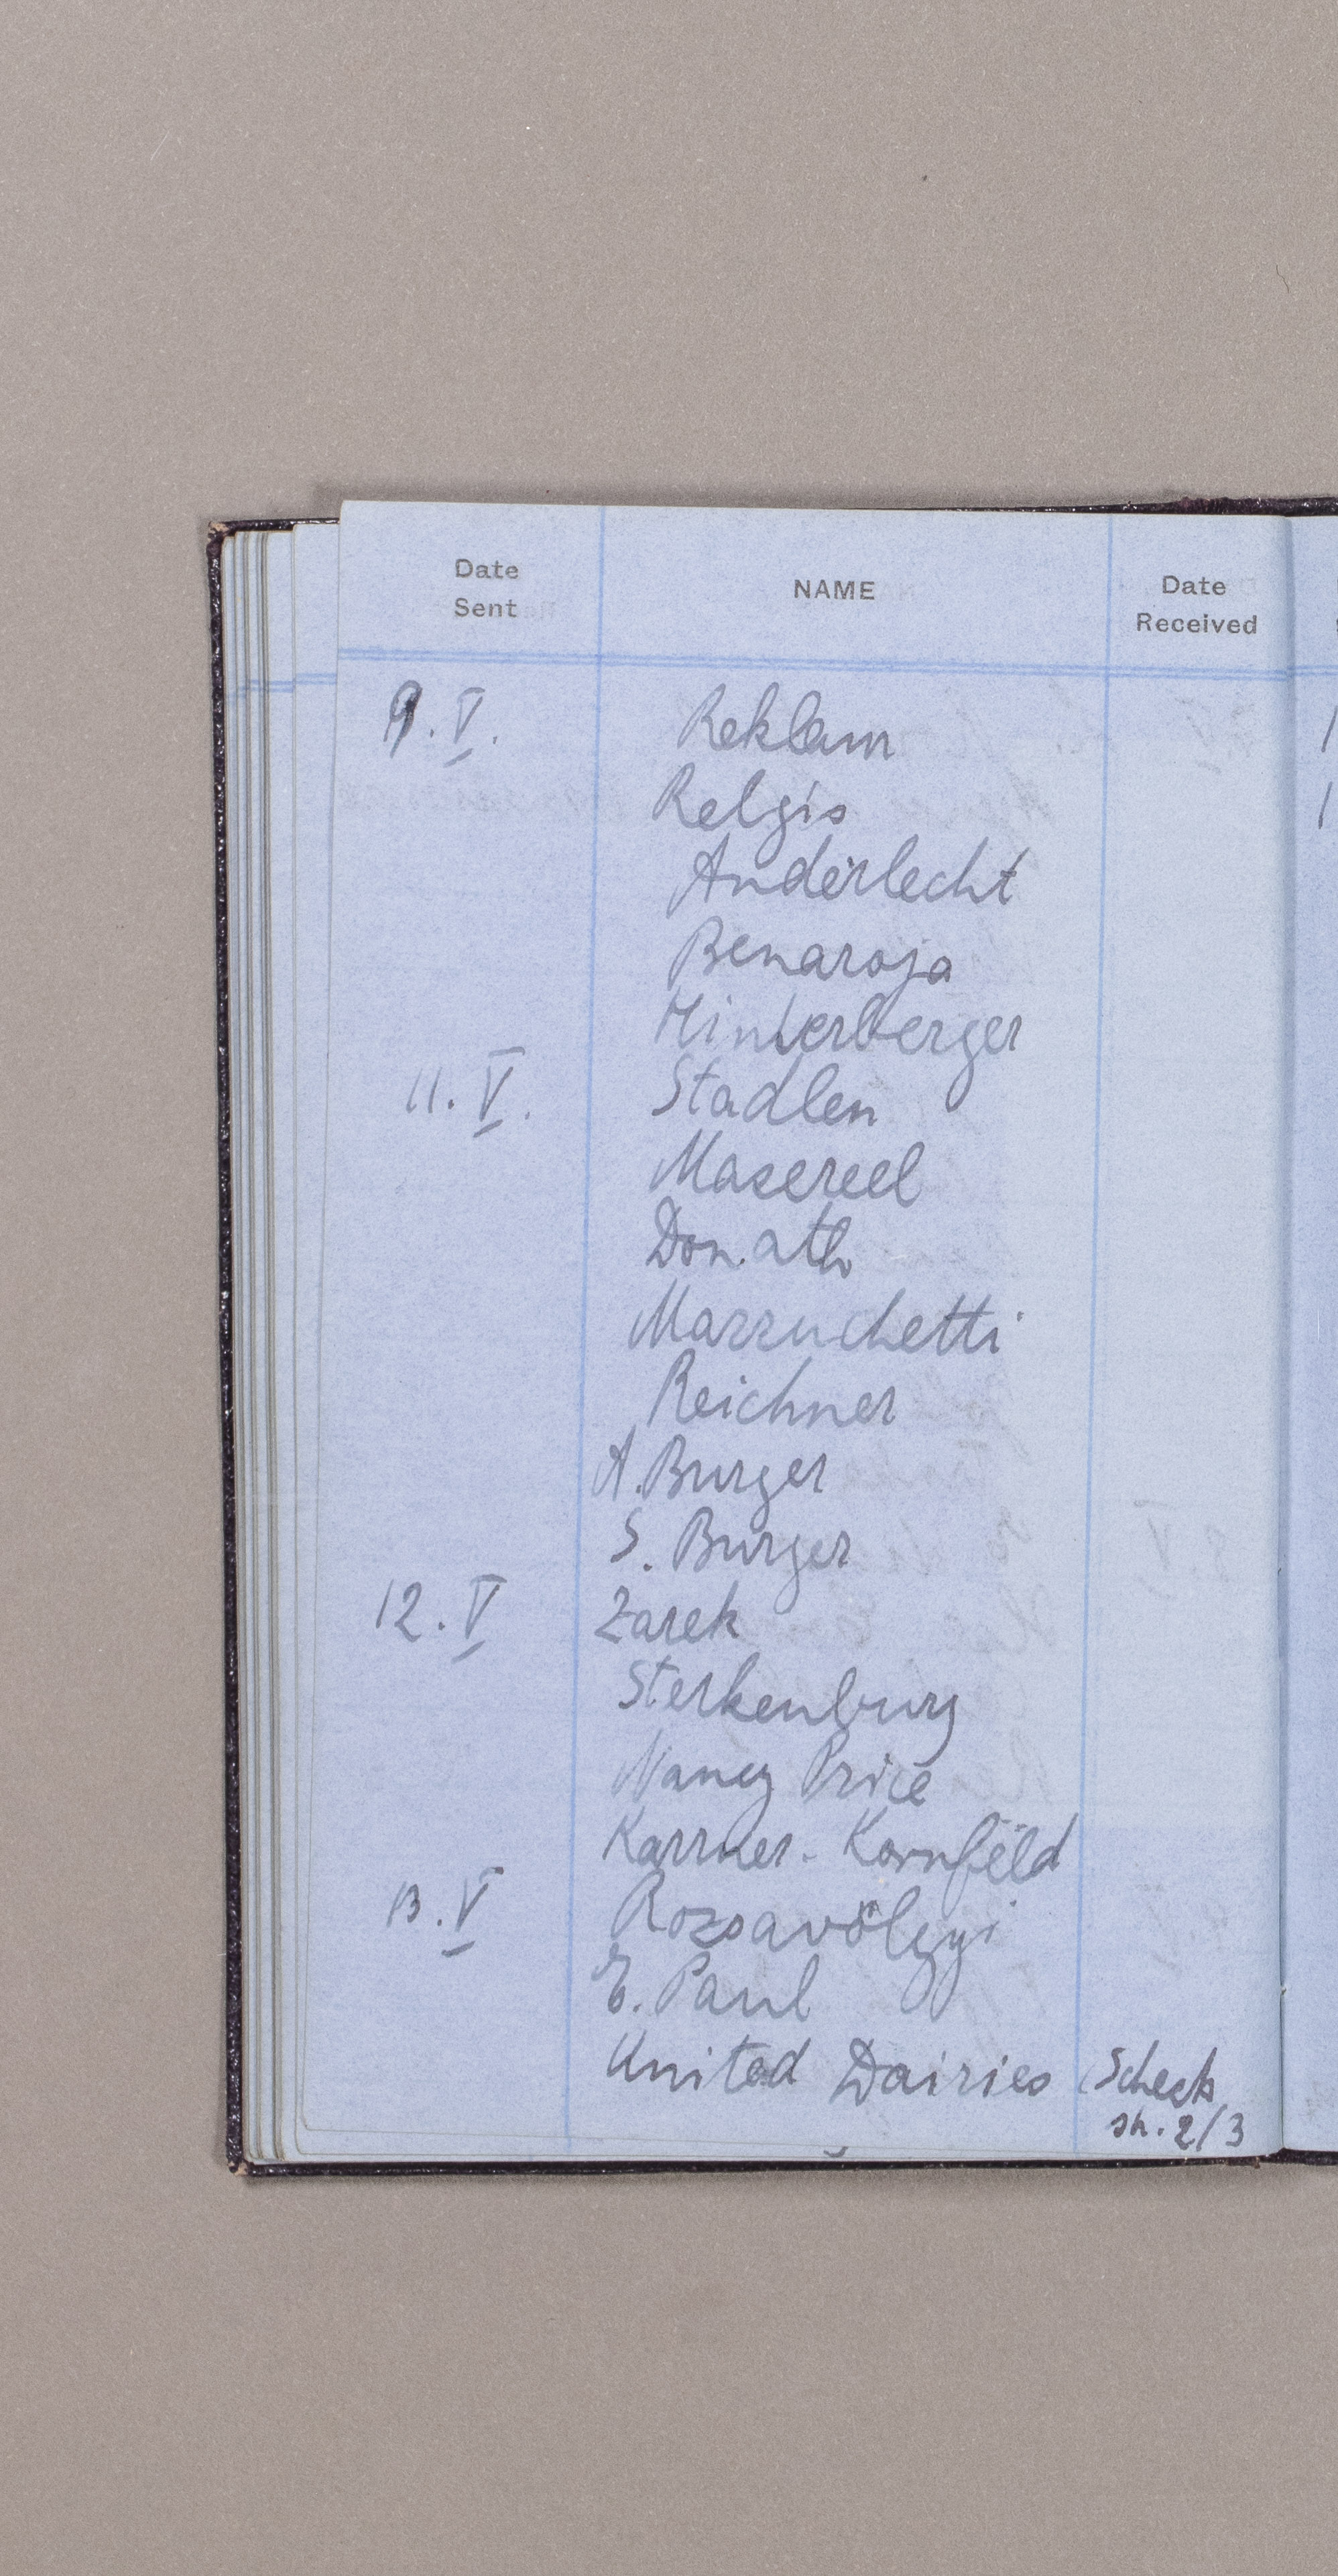 Date Sent NAME Date Received
9. V. Reklam
Relgis
Anderlecht
Benaroja
Hinterberger
11. V. Stadlen
Masereel
Donath
Marruchetti
Reichner
A. Burger
S. Burger
12. V Zarek
Sterkenburg
Nancy Price
Karrner-Kornfeld
13. V Rozsavölgyi
E. Paul
United Dairies Scheck
sh. 2/3